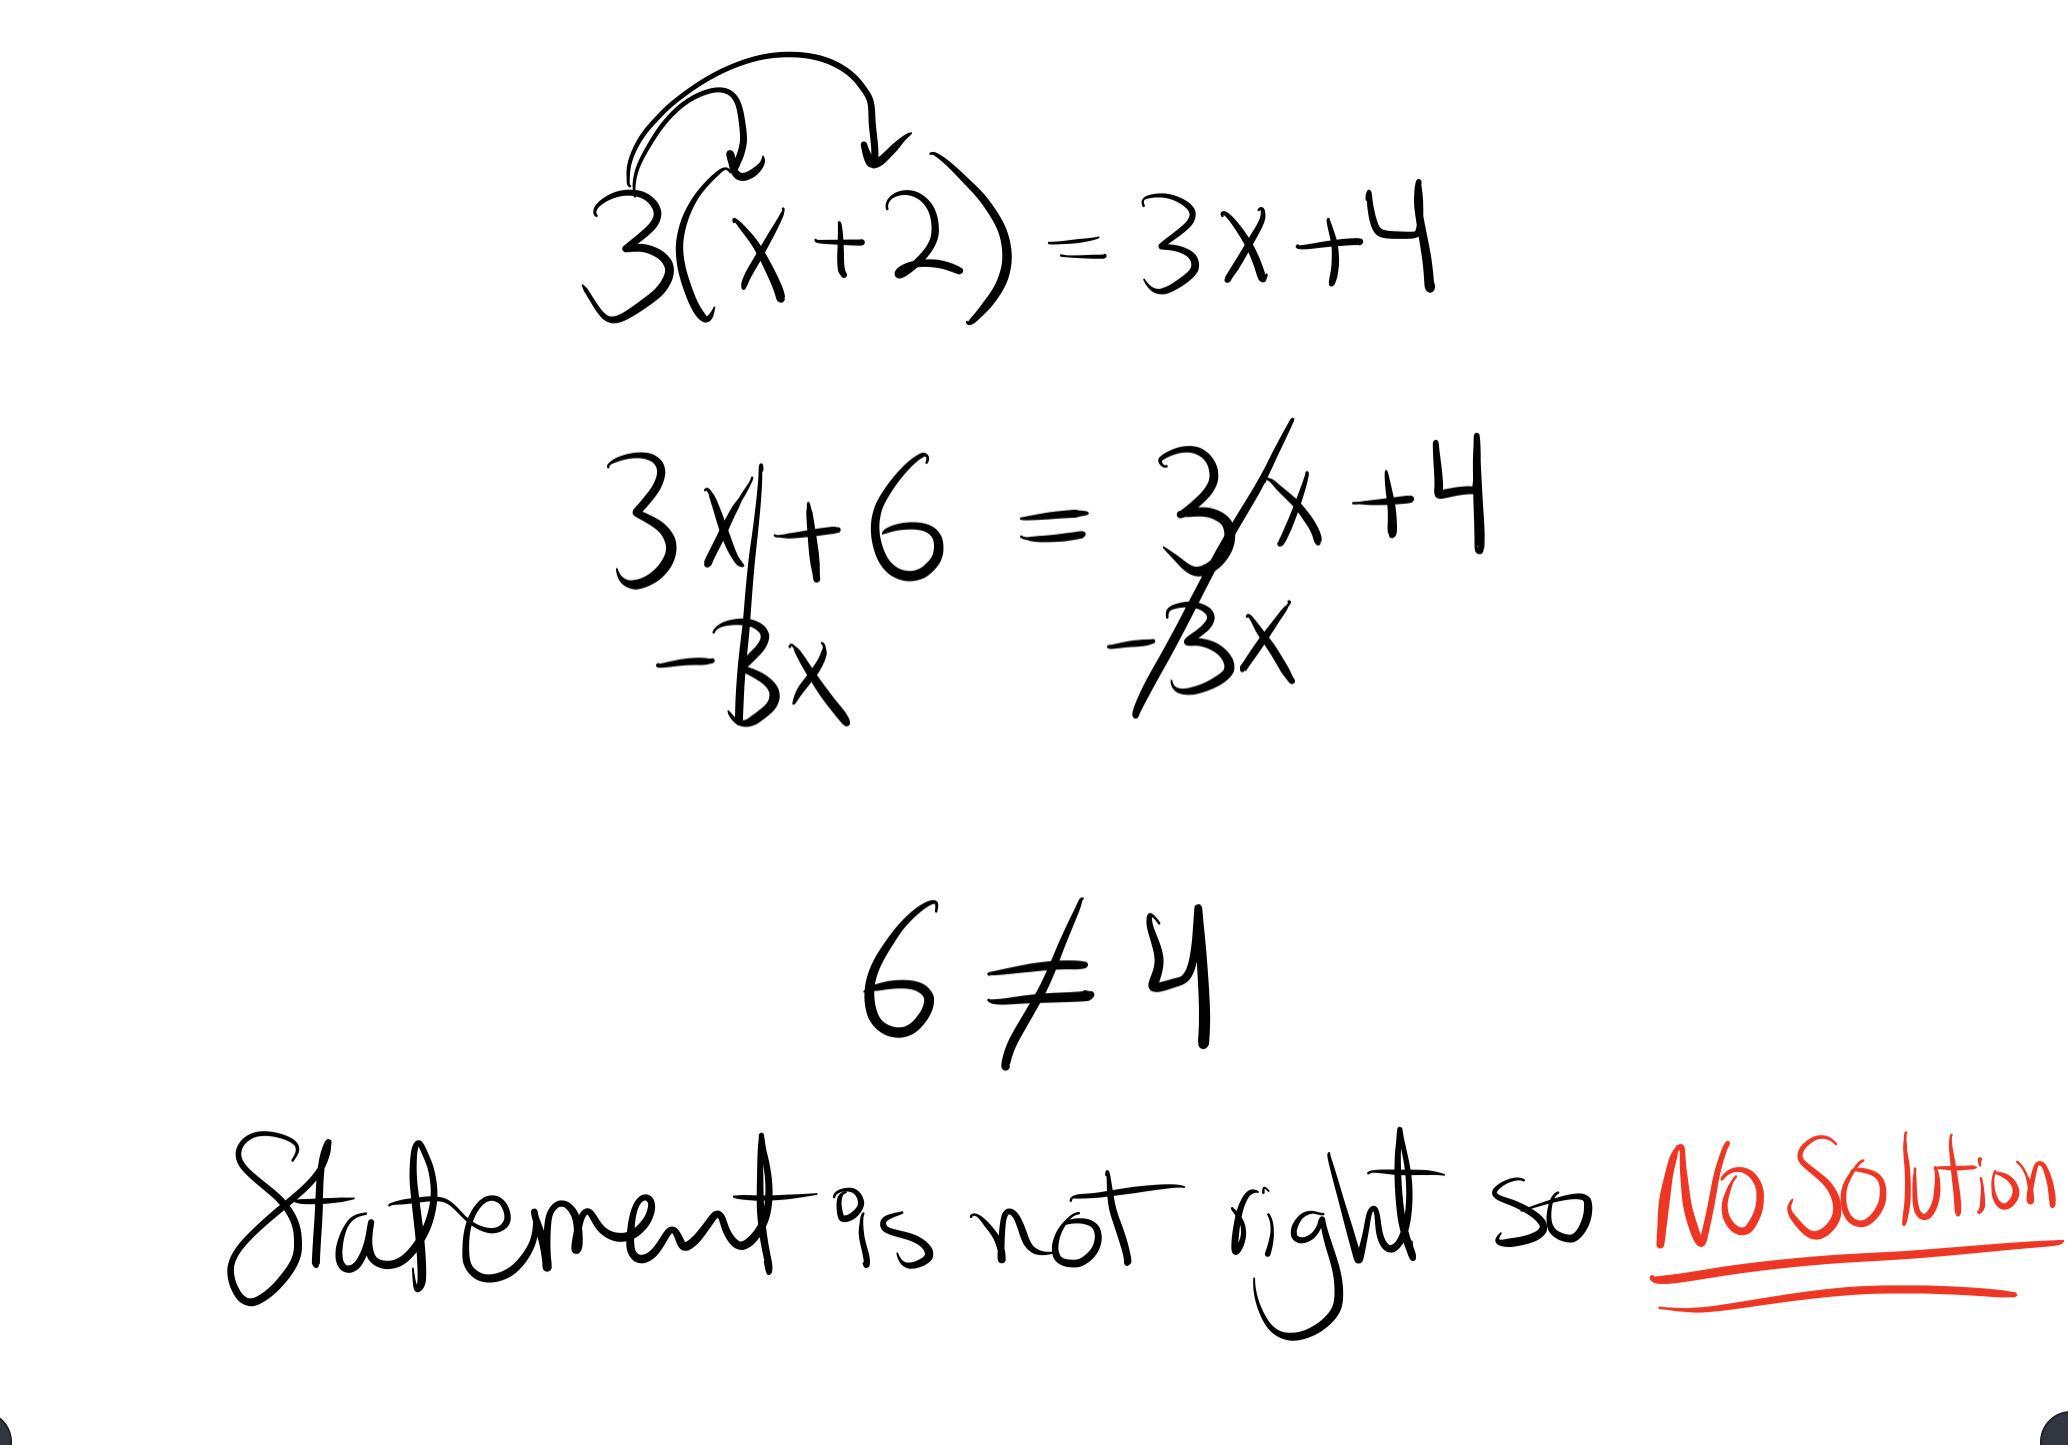 3(x+2) = 3x+4
3x+6 = 3x+4
-3x -3x
6 ≠ 4
Statement is not right so No Solution